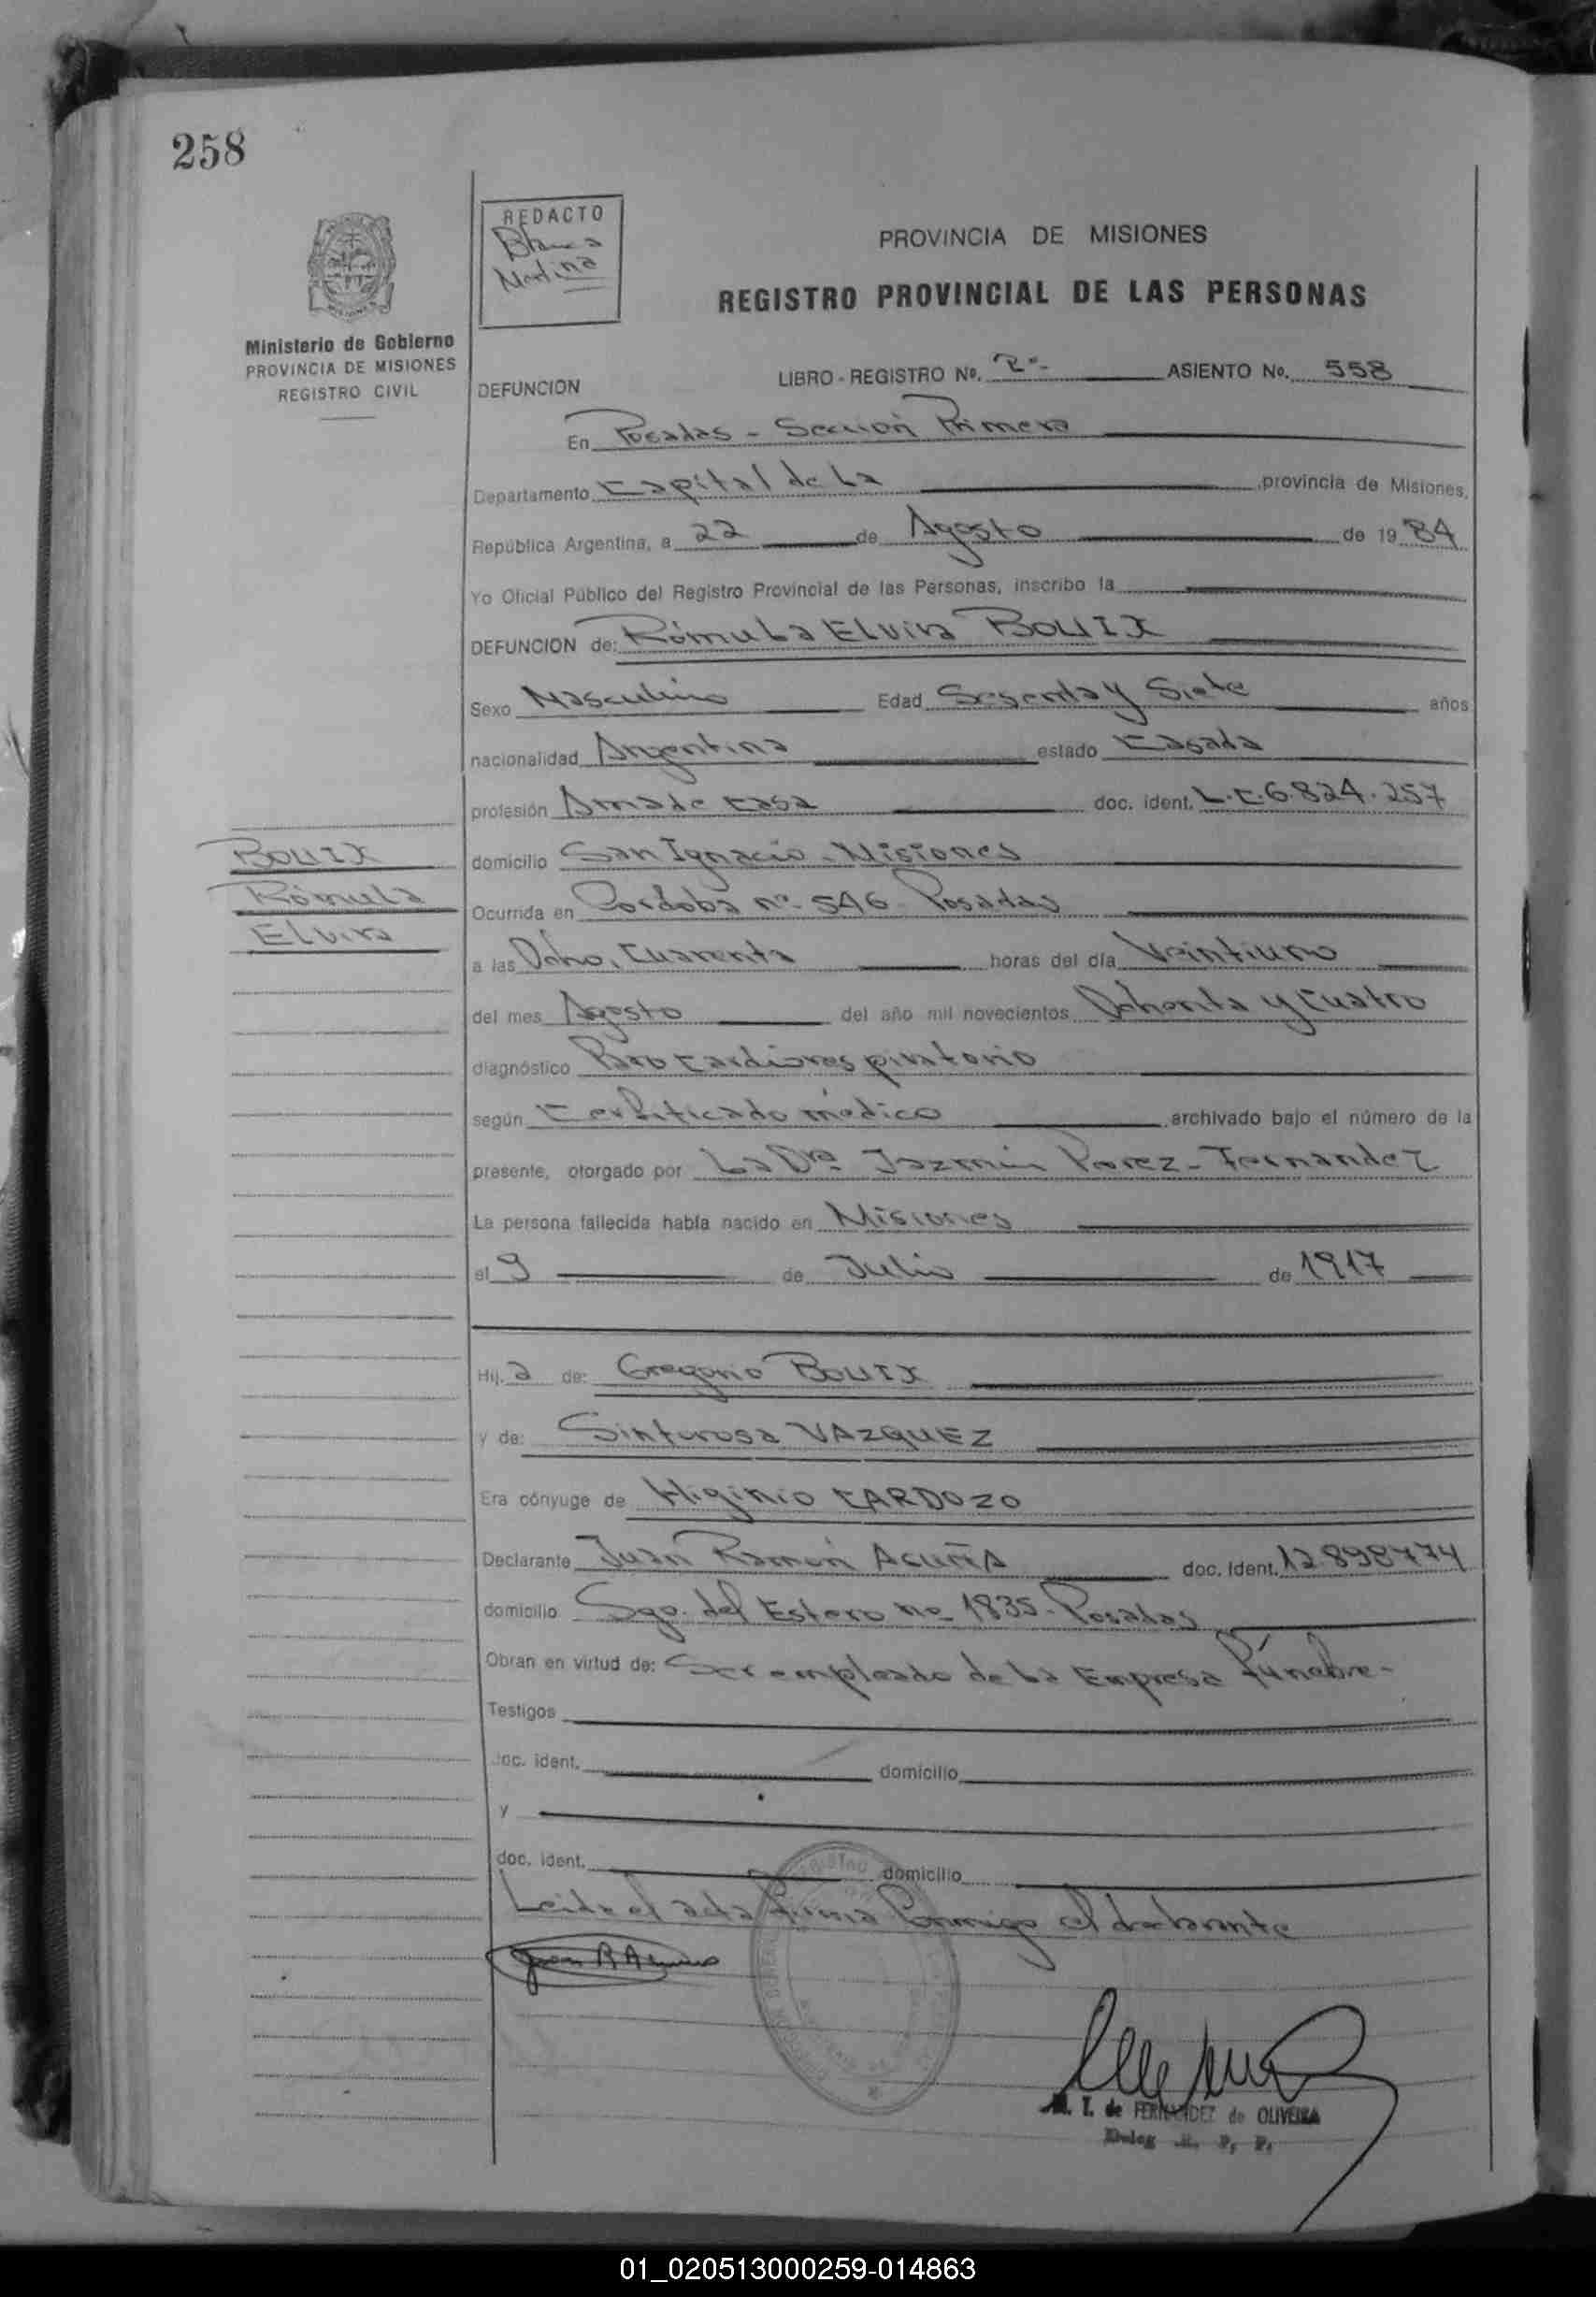 258
REDACTO
Blanca
Ministerio de Gobierno
PROVINCIA DE MISIONES
REGISTRO CIVIL
PROVINCIA DE MISIONES
REGISTRO PROVINCIAL DE LAS PERSONAS
DEFUNCION
LIBRO - REGISTRO Nº. 2º- ASIENTO Nº. 558
En Posadas - Sección Primera
Departamento Capital de La provincia de Misiones,
República Argentina, a 22 de Agosto de 1984
Yo Oficial Público del Registro Provincial de las Personas, inscribo la
DEFUNCION de: Rómula Elvira BOUIX
Sexo Masculino Edad Sesenta y Siete años
nacionalidad Argentina estado Casada
profesión Ama de casa doc. ident. L.C.6.824.257
domicilio San Ignacio - Misiones
Ocurrida en Córdoba nº- 546 Posadas
a las Ocho, Cuarenta horas del día Veintiuno
del mes Agosto del año mil novecientos Ochenta y Cuatro
diagnóstico Paro cardiorespiratorio
según Certificado médico archivado bajo el número de la
presente, otorgado por La Dra Jazmín Perez - Fernandez
La persona fallecida había nacido en Misiones
el 9 de Julio de 1917
BOUIX
Rómula
Elvira
Hij a de: Gregorio BOUIX
y de: Sinforosa VAZQUEZ
Era cónyuge de Higinio CARDOZO
Declarante Juan Ramón ACUÑA doc. ident. 12.898774
domicilio Sgo. del Estero no 1835 - Posadas
Obran en virtud de: Ser empleado de La Empresa fúnebre -
Testigos
doc. ident. domicilio
y
doc. ident. domicilio
Leida el acta firma Conmigo el declarante
M. I. de FERNANDEZ de OLIVEIRA
Deleg. R. P. P.
01_020513000259-014863